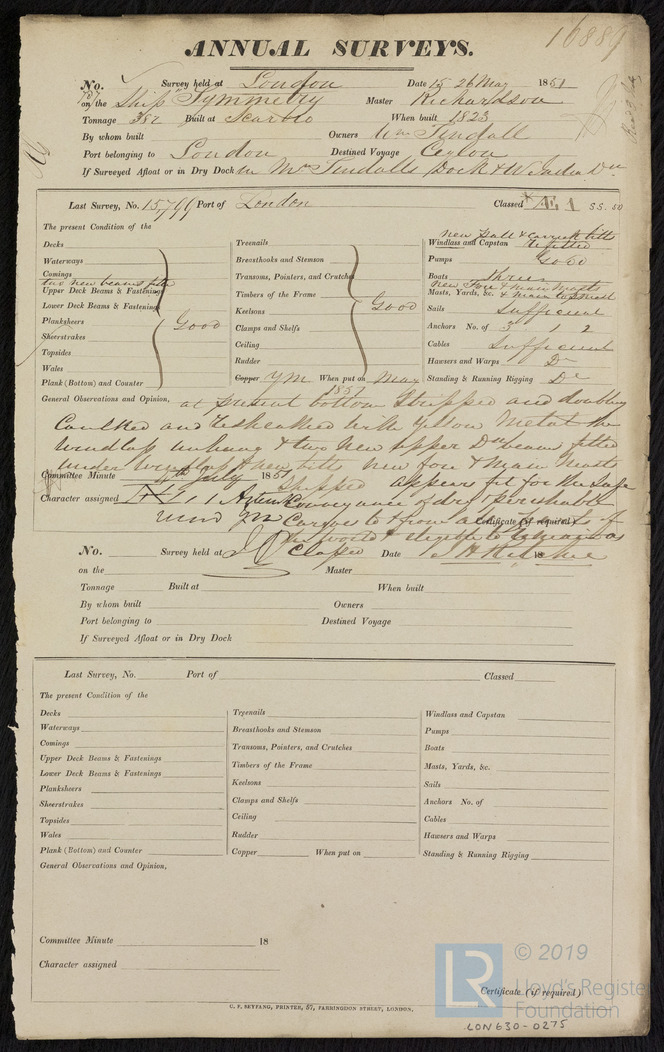 16889
ANNUAL SURVEYS.
No. Survey held at London Date 15 26 May 1851
on the Ship Symmetry Master Richardson
Tonnage 382 Built at Scarbro When built 1823
By whom built Owners Wm Tindall
Port belonging to London Destined Voyage Ceylon
If Surveyed Afloat or in Dry Dock in Mr Tindalls Dock & W India Do
Last Survey, No. 15799 Port of London Classed Æ 1 SS. 50
The present Condition of the
Decks
Waterways
Comings
two new beams
Upper Deck Beams & Fastenings
Lower Deck Beams & Fastenings
Planksheers Good
Sheerstrakes
Topsides
Wales
Plank (Bottom) and Counter
Treenails
Breasthooks and Stemson
Transoms, Pointers, and Crutches
Timbers of the Frame
Keelsons Good
Clamps and Shelfs
Ceiling
Rudder
Copper YM When put on May 1851
new Pall & carrick bitts
Windlass and Capstan refitted
Pumps Good
Boats Three
new Fore & Main Masts
Masts, Yards, &c. & Main topmast
Sails Sufficient
Anchors No. of 3 1 2
Cables Sufficient
Hawsers and Warps Do
Standing & Running Rigging Do
General Observations and Opinion, at present bottom Stripped and doubling
Caulked and resheathed with Yellow Metal the
windlass unhung & two New upper Dk beams fitted
under windlass & new bitts new fore & Main Masts
Committee Minute 4th July 1851 Shipped appears fit for the safe
Character assigned Æ 1 conveyance of dry & perishable
Cargoes to & from all parts of
Certificate (if required)
the world & eligible to remain as
classed
No. Survey held at Date 18
on the Master
Tonnage Built at When built
By whom built Owners
Port belonging to Destined Voyage
If Surveyed Afloat or in Dry Dock
Last Survey, No. Port of Classed
The present Condition of the
Decks
Waterways
Comings
Upper Deck Beams & Fastenings
Lower Deck Beams & Fastenings
Planksheers
Sheerstrakes
Topsides
Wales
Plank (Bottom) and Counter
Treenails
Breasthooks and Stemson
Transoms, Pointers, and Crutches
Timbers of the Frame
Keelsons
Clamps and Shelfs
Ceiling
Rudder
Copper When put on
Windlass and Capstan
Pumps
Boats
Masts, Yards, &c.
Sails
Anchors No. of
Cables
Hawsers and Warps
Standing & Running Rigging
General Observations and Opinion,
Committee Minute 18
Character assigned
Certificate (if required)
C. F. SEYFANG, PRINTER, 57, FARRINGDON STREET, LONDON.
LR © 2019
Lloyd's Register
Foundation
LON630-0275